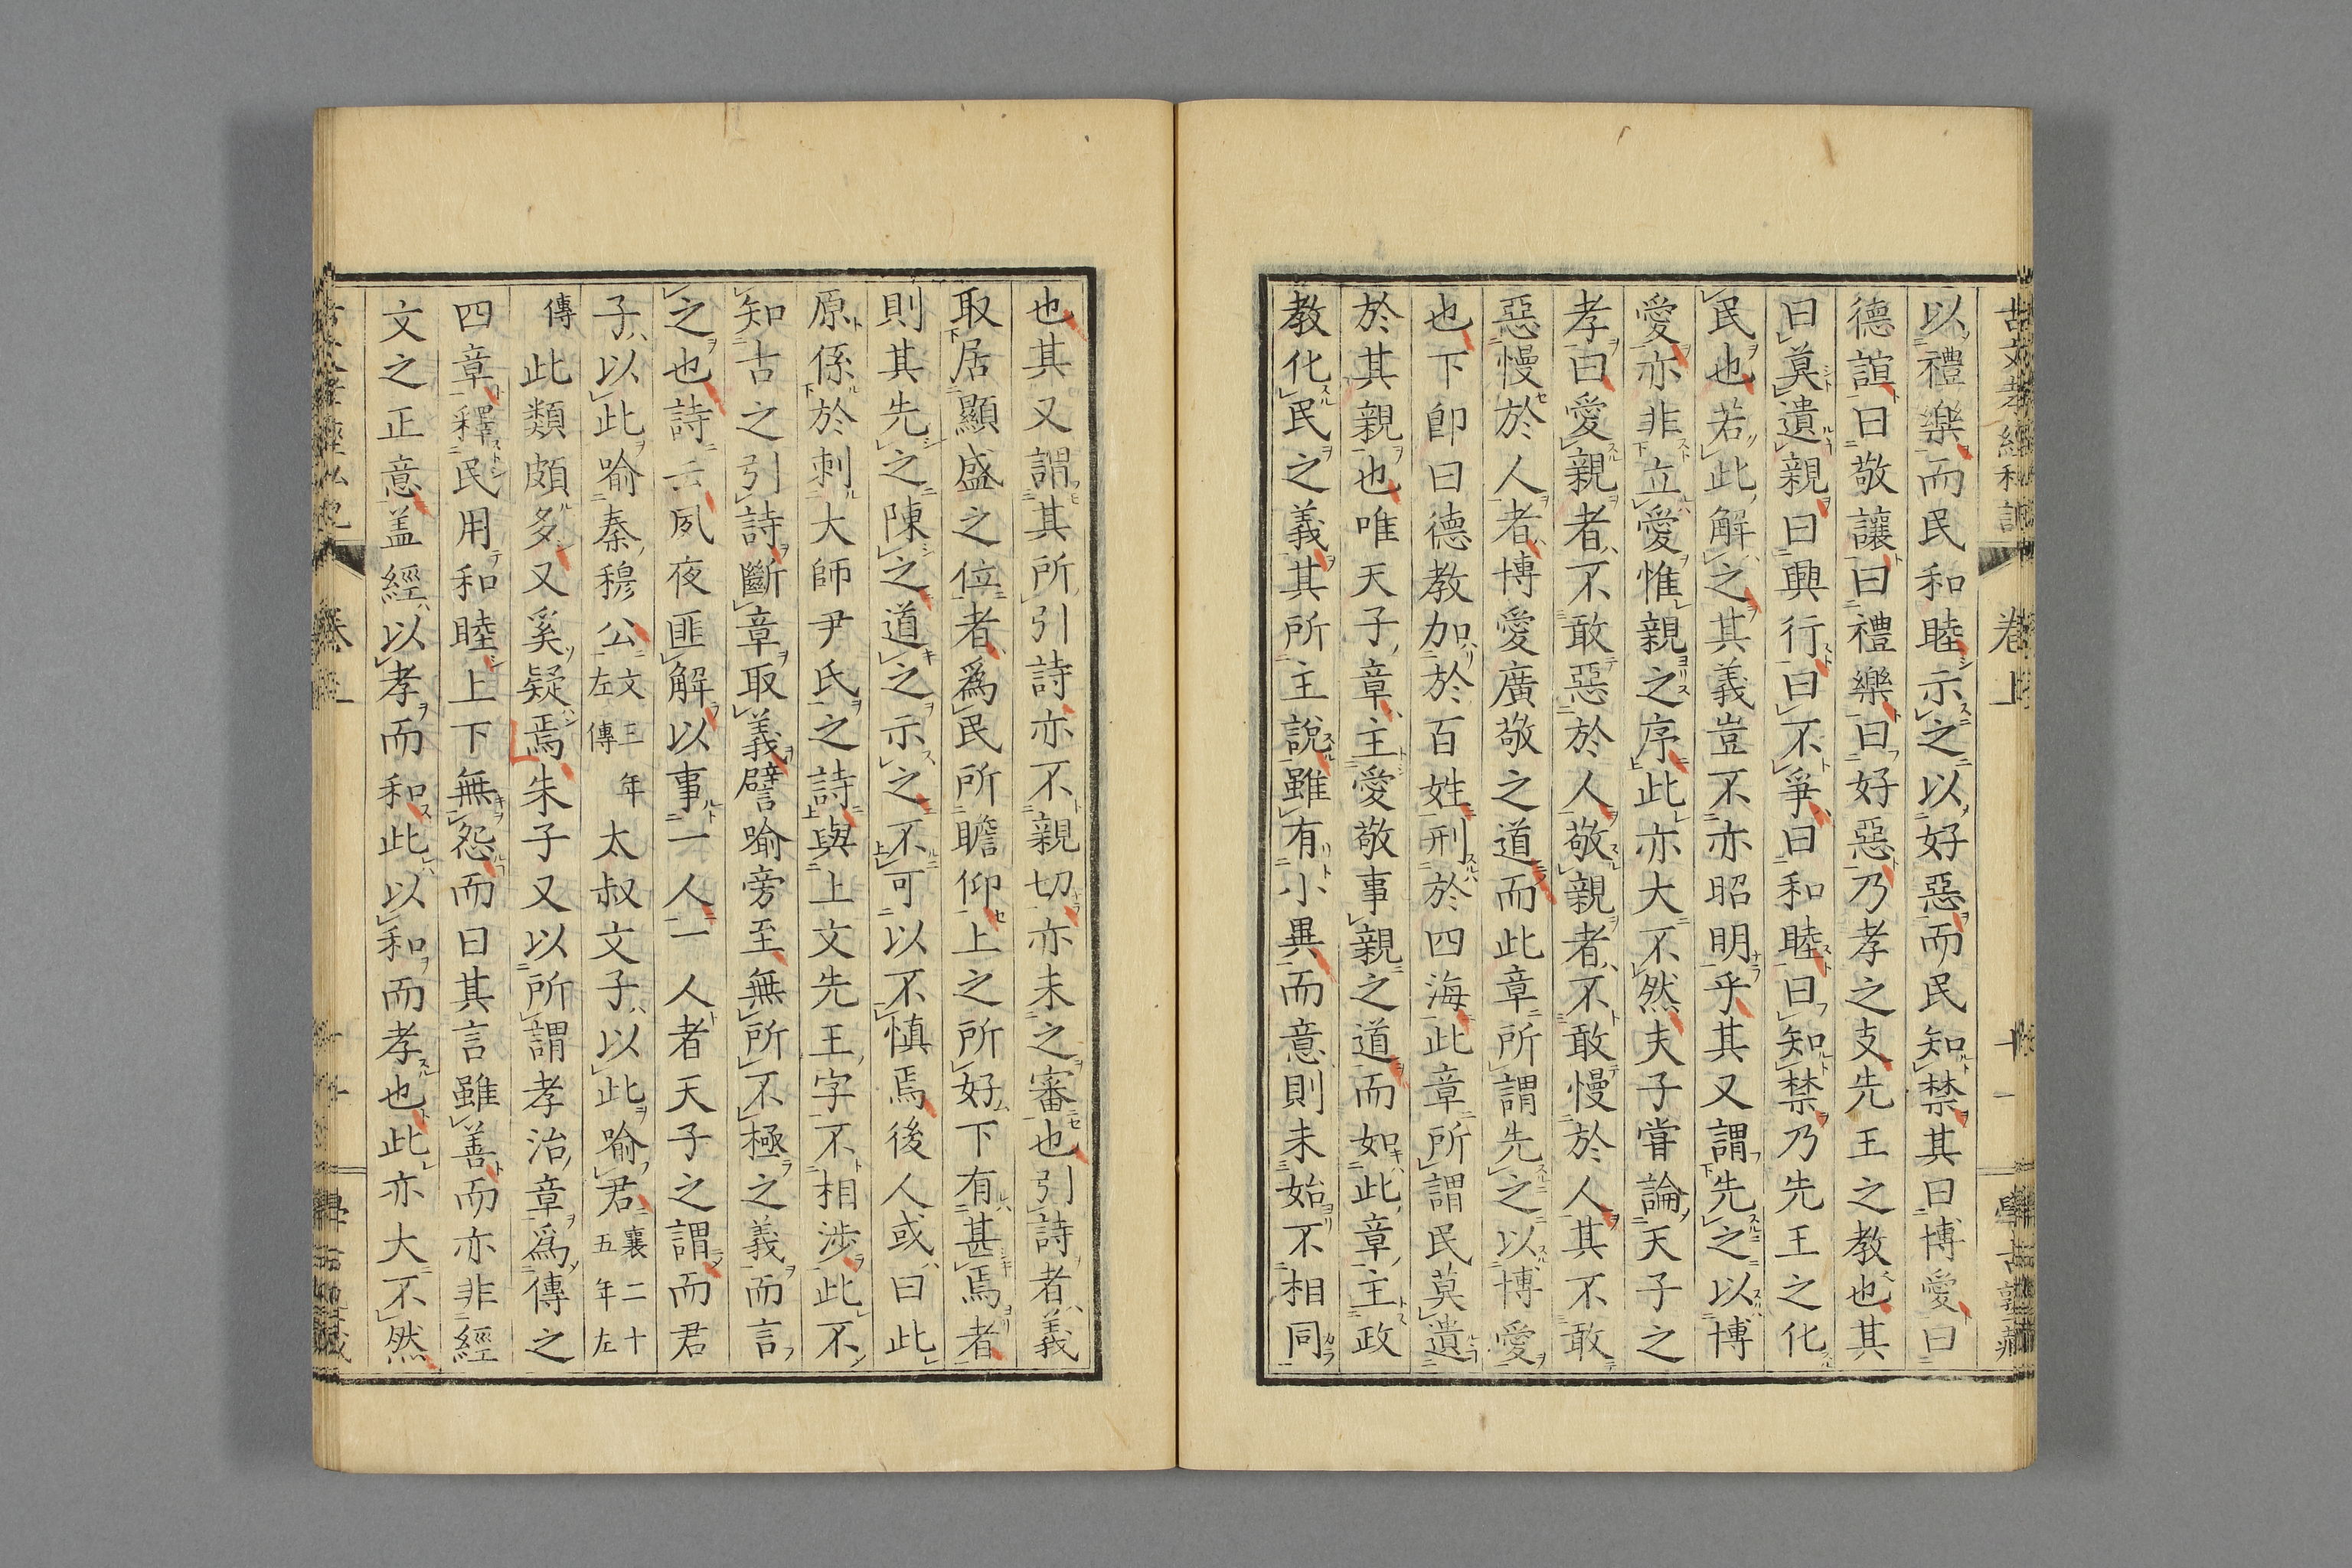 以禮樂而民和睦示之以好惡而民知禁其曰博愛曰
德誼曰敬讓曰禮樂曰好惡乃孝之支先王之教也其
曰莫遺親曰興行曰不爭曰和睦曰知禁乃先王之化
民也若此解之其義豈不亦昭明乎其又謂先之以博
愛亦非立愛惟親之序此亦大不然夫子甞論天子之
孝曰愛親者不敢惡於人敬親者不敢慢於人其不敢
惡慢於人者博愛廣敬之道而此章所謂先之以博愛
也下卽曰德教加於百姓刑於四海此章所謂民莫遺
於其親也唯天子章主愛敬事親之道而如此章主政
教化民之義其所主說雖有小異而意則未始不相同
也其又謂其所引詩亦不親切亦未之審也引詩者義
取居顯盛之位者爲民所瞻仰上之所好下有甚焉者
則其先之陳之道之示之不可以不慎焉後人或曰此
原係於刺大師尹氏之詩與上文先王字不相涉此不
知古之引詩斷章取義譬喻旁至無所不極之義而言
之也詩云夙夜匪解以事一人一人者天子之謂而君
子以此喻秦穆公文三年左傳太叔文子以此喻君襄二十五年左
傳此類頗多又奚疑焉朱子又以所謂孝治章爲傳之
四章釋民用和睦上下無怨而曰其言雖善而亦非經
文之正意盖經以孝而和此以和而孝也此亦大不然
卷上
十一